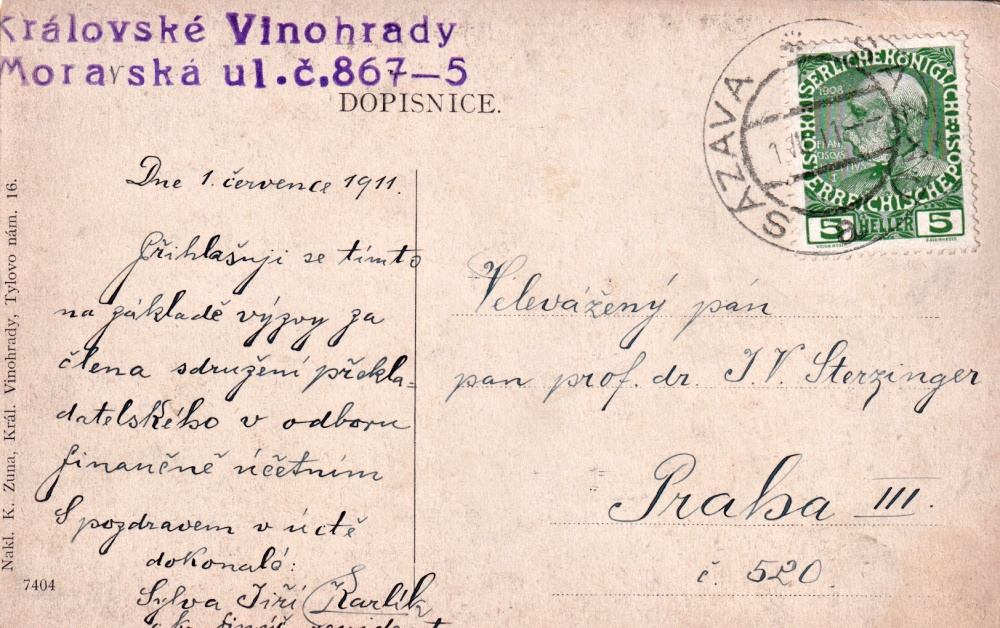 Královské Vinohrady
Moravská ul.č.867–5
DOPISNICE.
Dne 1. července 1911.
Přihlašuji se tímto
na základě výzvy za
člena sdružení překla=
datelského v odboru
finančně účetním
S pozdravem v úctě
dokonalé:
Sylva Jiří Karlík
Velevážený pán
pan prof. dr. J. V. Sterzinger
Praha III.
č. 520.
SÁZAVA
KAISERLICHE KÖNIGLICHE
ÖSTERREICHISCHE POST
1908
FRAN
CISCVS
5 HELLER 5
Nakl. K. Zuna, Král. Vinohrady, Tylovo nám. 16.
7404